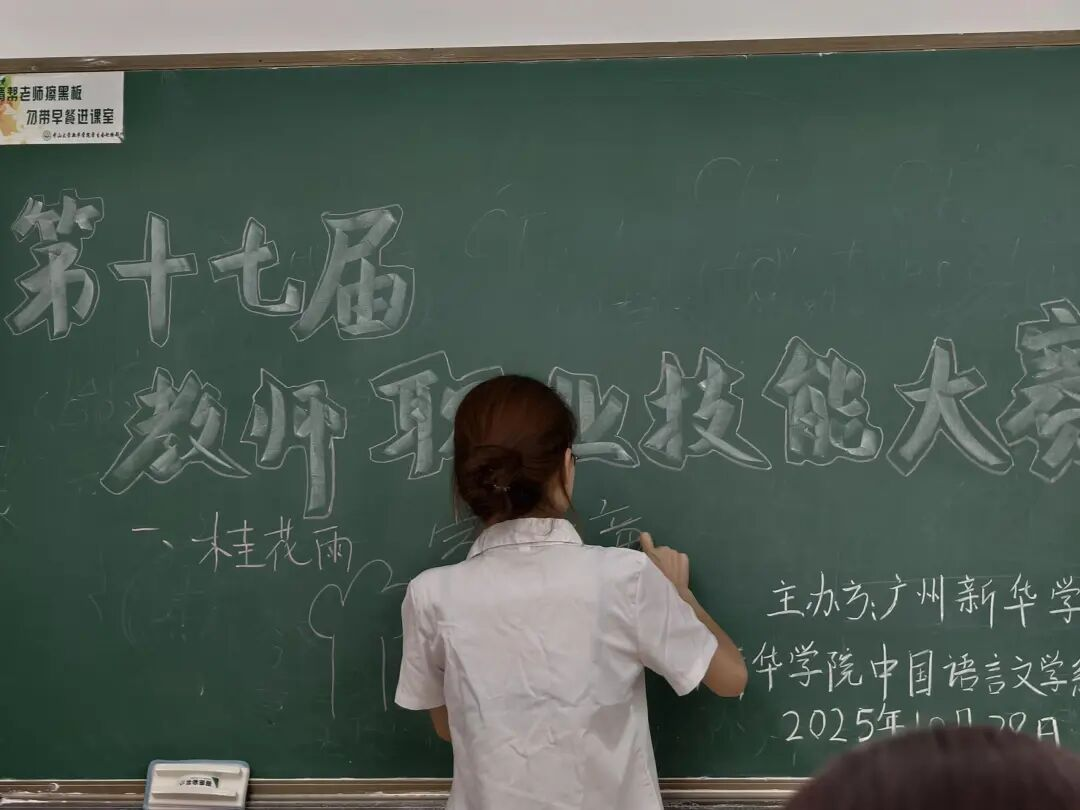 请帮老师擦黑板
勿带早餐进课室
第十七届
教师职业技能大赛
一、桂花雨
主办方:广州新华学
华学院中国语言文学系
2025年10月28日